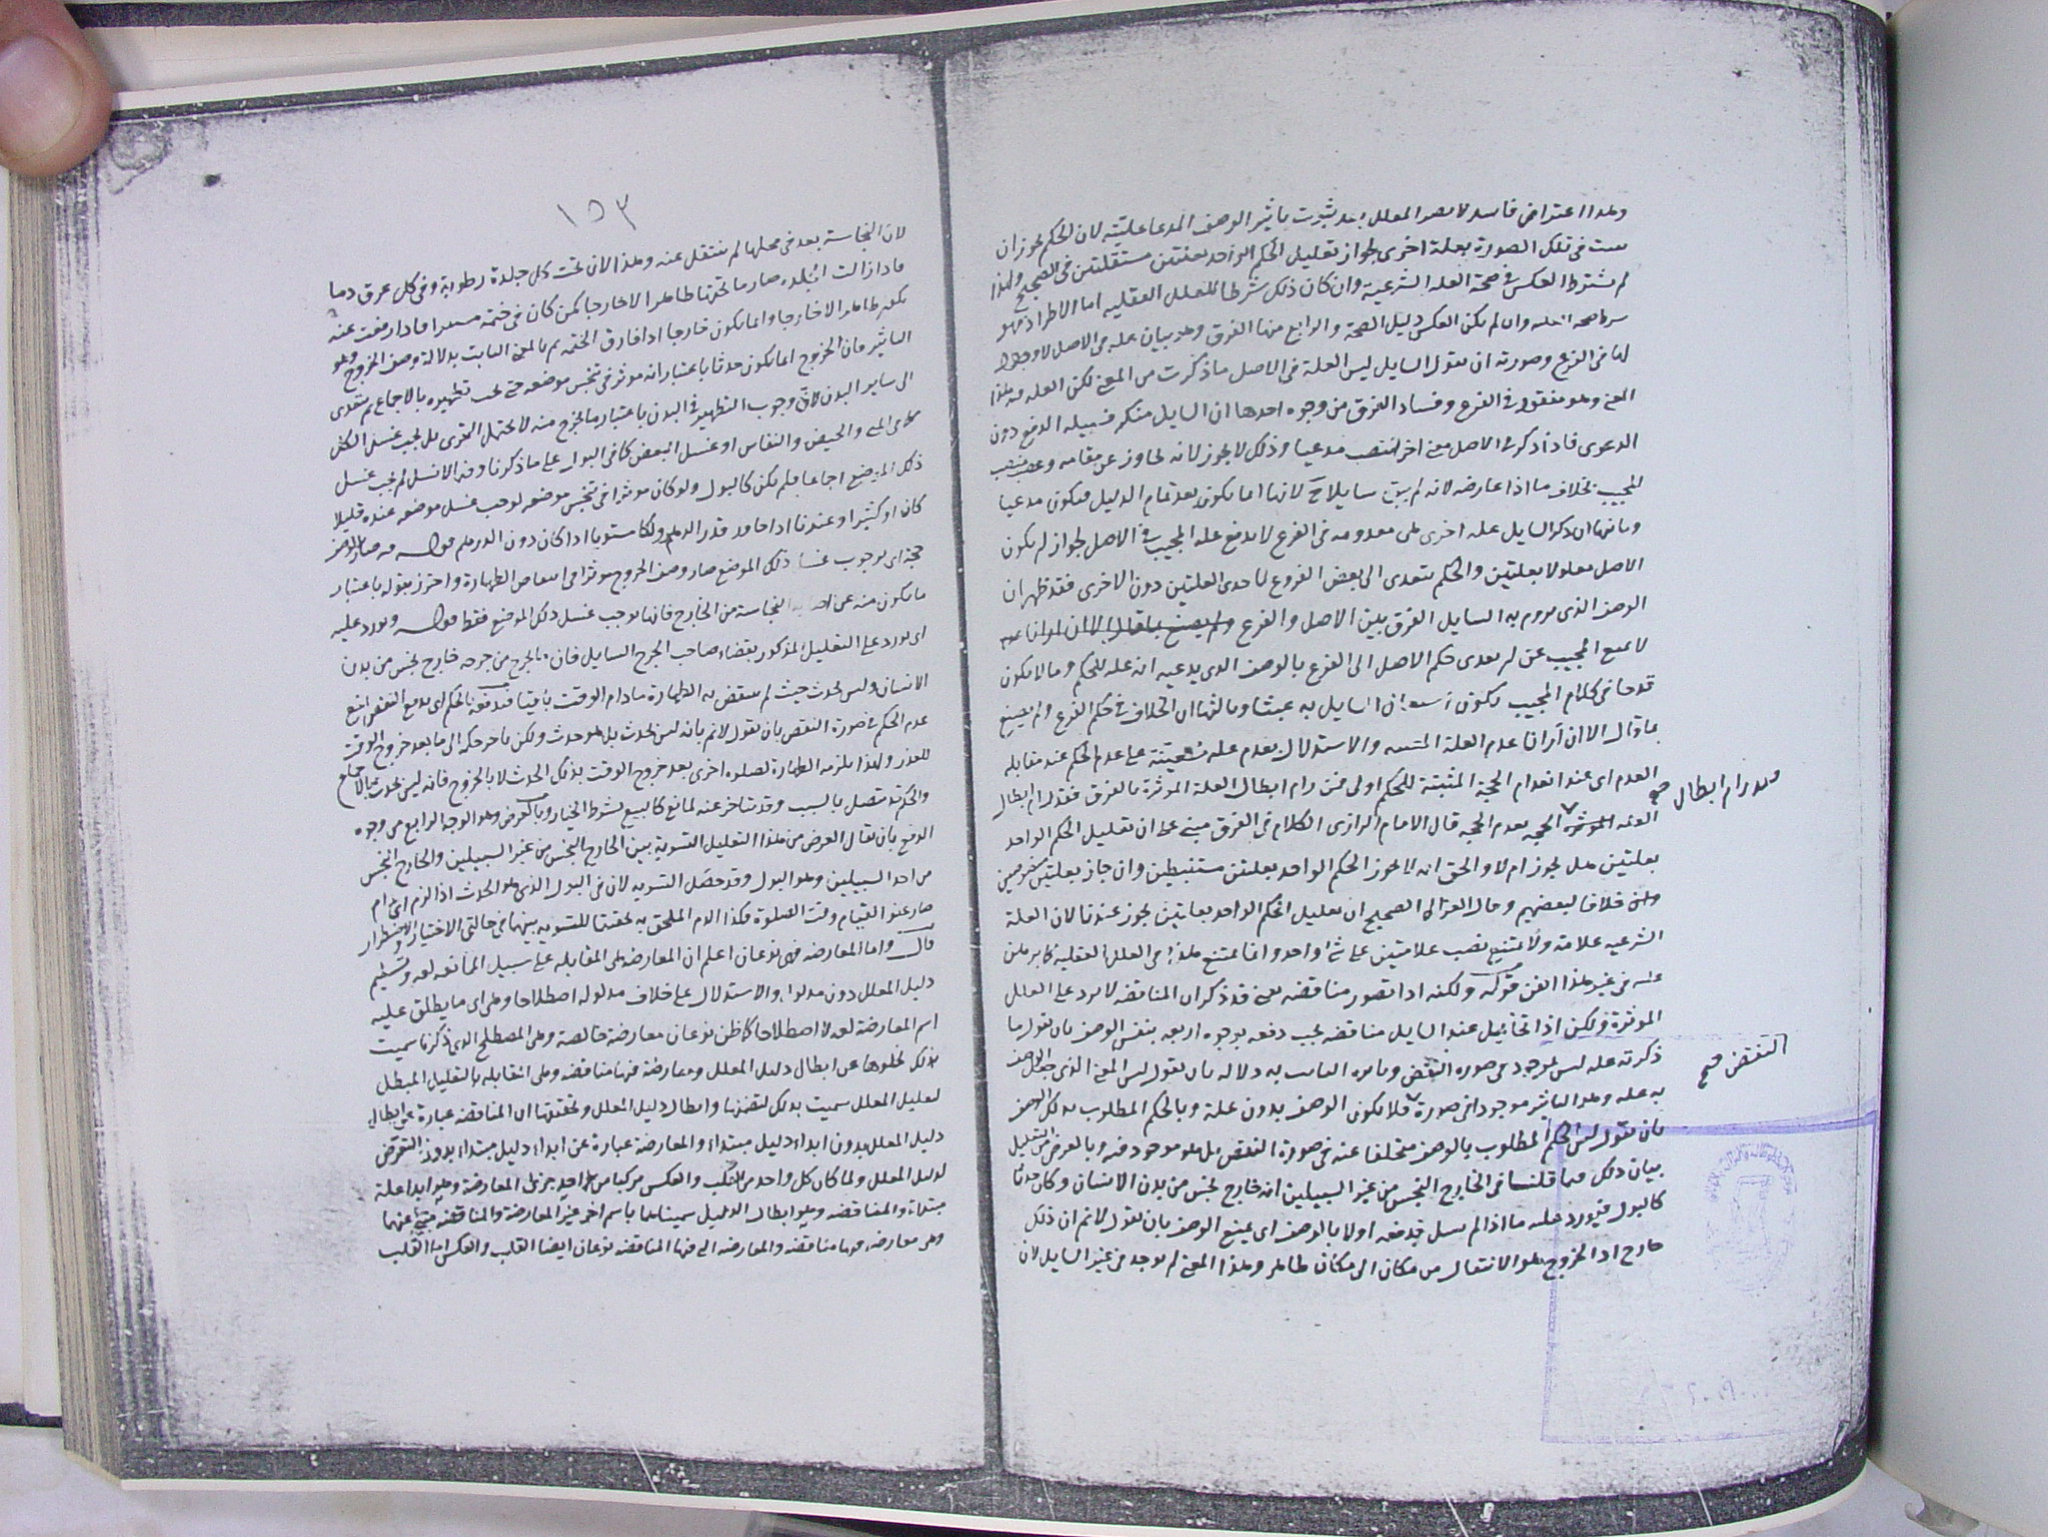 ولهذا اعتراض فاسد لا يضر المعلل بعد ثبوت تاثير الوصف المدعا عليته لان الحكم يجوز ان
في تلك الصورة بعلة اخرى لجواز تعليل الحكم الواحد بعلتين مستقلتين في الصحيح ولهذا
لم يشترط العكس في صحة العلة الشرعية وان كان ذلك شرطا للعلل العقلية اما الاطراد فهو
شرط صحة العلة وان لم يكن العكس دليل الصحة والرابع منها الفرق وهو بيان علة في الاصل لا وجود
لها في الفرع وصورته ان يقول السايل ليس العلة في الاصل ما ذكرت من المعنى لكن العلة فيه هذا
المعنى وهو مفقود في الفرع وفساد الفرق من وجوه احدها ان السايل منكر فسبيله الدفع دون
الدعوى فاذا ذكر في الاصل معنى اخر انتصب مدعيا وذلك لا يجوز لانه تجاوز عن مقامه وغصب منصب
المجيب بخلاف ما اذا عارضه لانه لم يبق سايلا ح لانها انما يكون بعد تمام الدليل فيكون مدعيا
وثانيها ان ذكر السايل علة اخرى هي معدومه في الفرع لا يدفع علة المجيب في الاصل لجواز ان يكون
الاصل معلولا بعلتين والحكم يتعدى الى بعض الفروع باحدى العلتين دون الاخرى فقد ظهر ان
الوصف الذي يروم به السايل الفرق بين الاصل والفرع ولم يصنع بما قال الا ان ارانا عدم
لا يمنع المجيب عن ان يعدى حكم الاصل الى الفرع بالوصف الذي يدعيه انه علة للحكم وما لا يكون
قدحا في كلام المجيب يكون اشتغال السايل به عبثا وثالثها ان الخلاف في حكم الفرع ولم يصنع
بما قال الا ان ارانا عدم العلة المعينة والاستدلال بعدم علة معينة على عدم الحكم عند مقابلة
العدم اى عند انعدام الحجة المثبتة للحكم اولى فمن رام ابطال العلة الموثرة بالفرق فقد رام ابطال
فقد رام ابطال صح
العلة الموثرة الحجة بعدم الحجة قال الامام الرازى الكلام في الفرق مبنى على ان تعليل الحكم الواحد
بعلتين هل يجوز ام لا والحق انه لا يجوز الحكم الواحد بعلتين مستنبطتين وان جاز بعلتين منصوصتين
خلافا لبعضهم وقال الغزالى الصحيح ان تعليل الحكم الواحد بعلتين يجوز عندنا لان العلة
الشرعيه علامة ولا يمتنع نصب علامتين على شئ واحد وانما يمتنع هذا في العلل العقلية كما برهن
عليه في غير هذا الفن قوله ولكنه اذا تصور مناقضة يعنى قد ذكر ان المناقضة لا يرد على العلل
الموثرة ولكن اذا تخايل عند السايل مناقضة يجب دفعه بوجوه اربعة بنفس الوصف بان يقول ما
ذكرته علة ليس بموجود في صورة النقض وبالمعنى الثابت به دلالة بان يقول ليس المعنى الذي جعل الوصف
النقض صح
به علة وهو التاثير موجودا في صورة فلا يكون الوصف بدون علة وبالحكم المطلوب بذلك الوصف
بان يقول ليس الحكم المطلوب بالوصف متخلفا عنه في صورة النقض بل هو موجود فيه وبالغرض من التعليل
بيان ذلك فيما قلنا في الخارج النجس من غير السبيلين انه خارج نجس من بدن الانسان وكان حدثا
كالبول فيورد عليه ما اذا لم يسل فيدفعه اولا بالوصف اى يمنع الوصف بان يقول لا نم ان ذلك
خارج اذ الخروج هو الانتقال من مكان الى مكان ظاهر وهذا المعنى لم يوجد في غير السايل لان
١٥٣
لان النجاسة بعد في محلها لم ينتقل عنه وهذا لان تحت كل جلدة رطوبة وفي كل عرق دما
فاذا زالت الجلدة صار ما تحتها ظاهرا لا خارجا كمن كان في خيمة مستترا فاذا رفعت عنه
يكون ظاهرا لا خارجا وانما يكون خارجا اذا فارق الخيمة ثم بالمعنى الثابت بدلالة وصف الخروج وهو
التاثير فان الخروج انما يكون حدثا باعتبار انه موثر في تنجس موضعه حتى يجب تطهيره بالاجماع ثم يتعدى
الى ساير البدن لان وجوب التطهير في البدن باعتبار ما يخرج منه لا يحتمل التجزى بل يجب غسل الكل
كما في المنى والحيض والنفاس او غسل البعض كما في البول على ما ذكرنا وفيه الا لم يسل لم يجب غسل
ذلك الموضع اجماعا فلم يكن كالبول ولو كان موثرا في تنجس موضعه لوجب غسل موضعه عنده قليلا
كان او كثيرا وعندنا اذا جاوز قدر الدرهم ولكان مستويا اذا كان دون الدرهم قوله فيه صار الوصف
حجة اى بوجوب غسل ذلك الموضع صار وصف الخروج موثرا في انتقاض الطهارة واحترز بقوله باعتبار
ما يكون منه عن اصابة النجاسة من الخارج فانها يوجب غسل ذلك الموضع فقط قوله ويورد عليه
اى يورد على التعليل المذكور بقضاء صاحب الجرح السايل فان ما يخرج من جرحه خارج نجس من بدن
الانسان وليس بحدث حيث لم ينتقض به الطهارة ما دام الوقت باقيا فندفعه بالحكم اى بدفع النقض بمنع
عدم الحكم في صورة النقض بان نقول لا نم بانه ليس بحدث بل هو حدث ولكن تاخر حكمه الى ما بعد خروج الوقت
للعذر ولهذا يلزمه الطهارة لصلوة اخرى بعد خروج الوقت بذلك الحدث لا بالخروج فانه ليس بحدث بالاجماع
والحكم قد يتصل بالسبب وقد يتاخر عنه لمانع كالبيع بشرط الخيار وبالغرض وهو الوجه الرابع من وجوه
الدفع بان يقال الغرض من هذا التعليل التسوية بين الخارج النجس من غير السبيلين والخارج النجس
من احد السبيلين وهو البول وقد حصل التسويه لان في البول الذي هو الحدث اذا لزم اى دام
صار عفوا لقيام وقت الصلوة فكذا الدم الملحق به تحقيقا للتسويه بينهما في حالتى الاختيار والاضطرار
قال واما المعارضة فهى نوعان اعلم ان المعارضة هى المقابله على سبيل الممانعه لغة وتسليم
دليل المعلل دون مدلوله والاستدلال على خلاف مدلوله اصطلاحا وهى اى ما يطلق عليه
اسم المعارضة لغه لا اصطلاحا كما ظن نوعان معارضة خالصة وهى المصطلح الذي ذكرنا سميت
بذلك لخلوها عن ابطال دليل المعلل ومعارضة فيها مناقضة وهى المقابلة بالتعليل المبطل
لتعليل المعلل سميت بذلك لتضمنها وابطال دليل المعلل وتحقيقها ان المناقضه عبارة عن ابطال
دليل المعلل بدون ابداء دليل مبتداء والمعارضة عبارة عن ابداء دليل مبتداء بدون التعرض
لدليل المعلل ولما كان كل واحد من القلب والعكس مركبا من احد جزئى المعارضة وهو ابداء علة
مبتداءة والمناقضه وهو ابطال الدليل سميناهما باسم اخر غير المعارضة والمناقضه مبنى عنهما
وهى معارضة فيها مناقضه والمعارضة التى فيها المناقضه نوعان ايضا القلب والعكس اما القلب